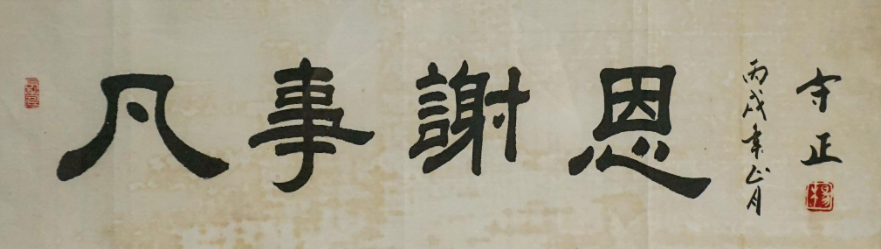 凡事謝恩
丙戌年正月
守正